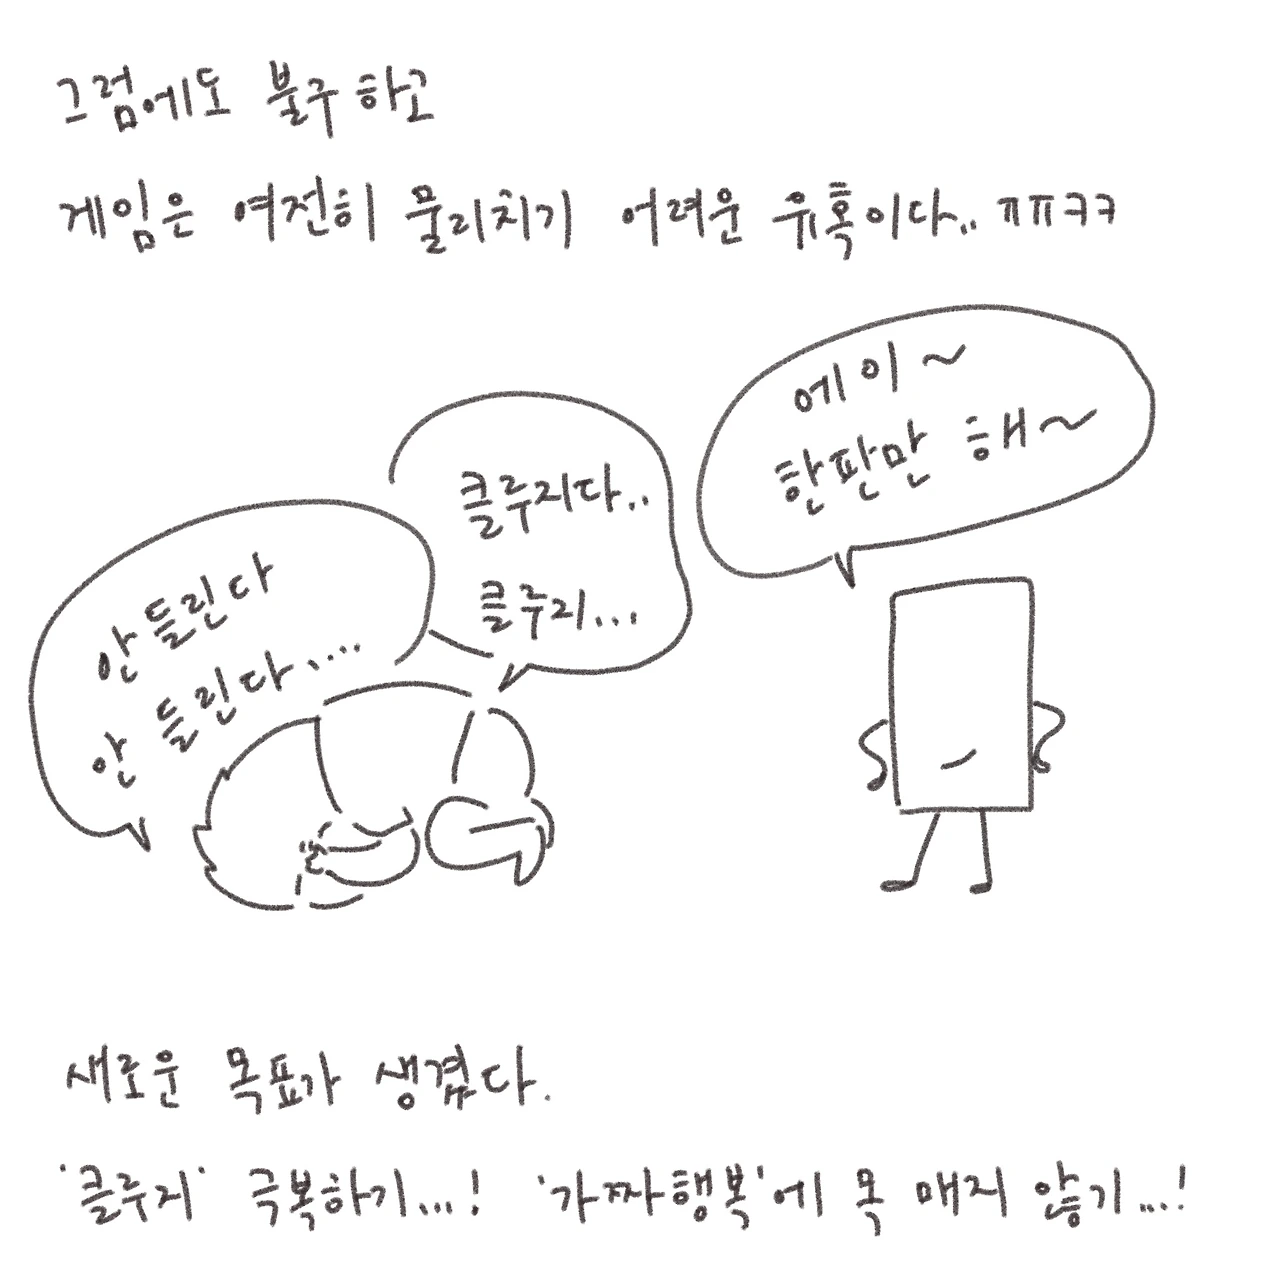 그럼에도 불구하고
게임은 여전히 물리치기 어려운 유혹이다.. ㅠㅠㅋㅋ
에이~
한판만 해~
클루지다..
클루지...
안들린다
안 들린다....
새로운 목표가 생겼다.
'클루지' 극복하기...! '가짜행복'에 목 매지 않기...!